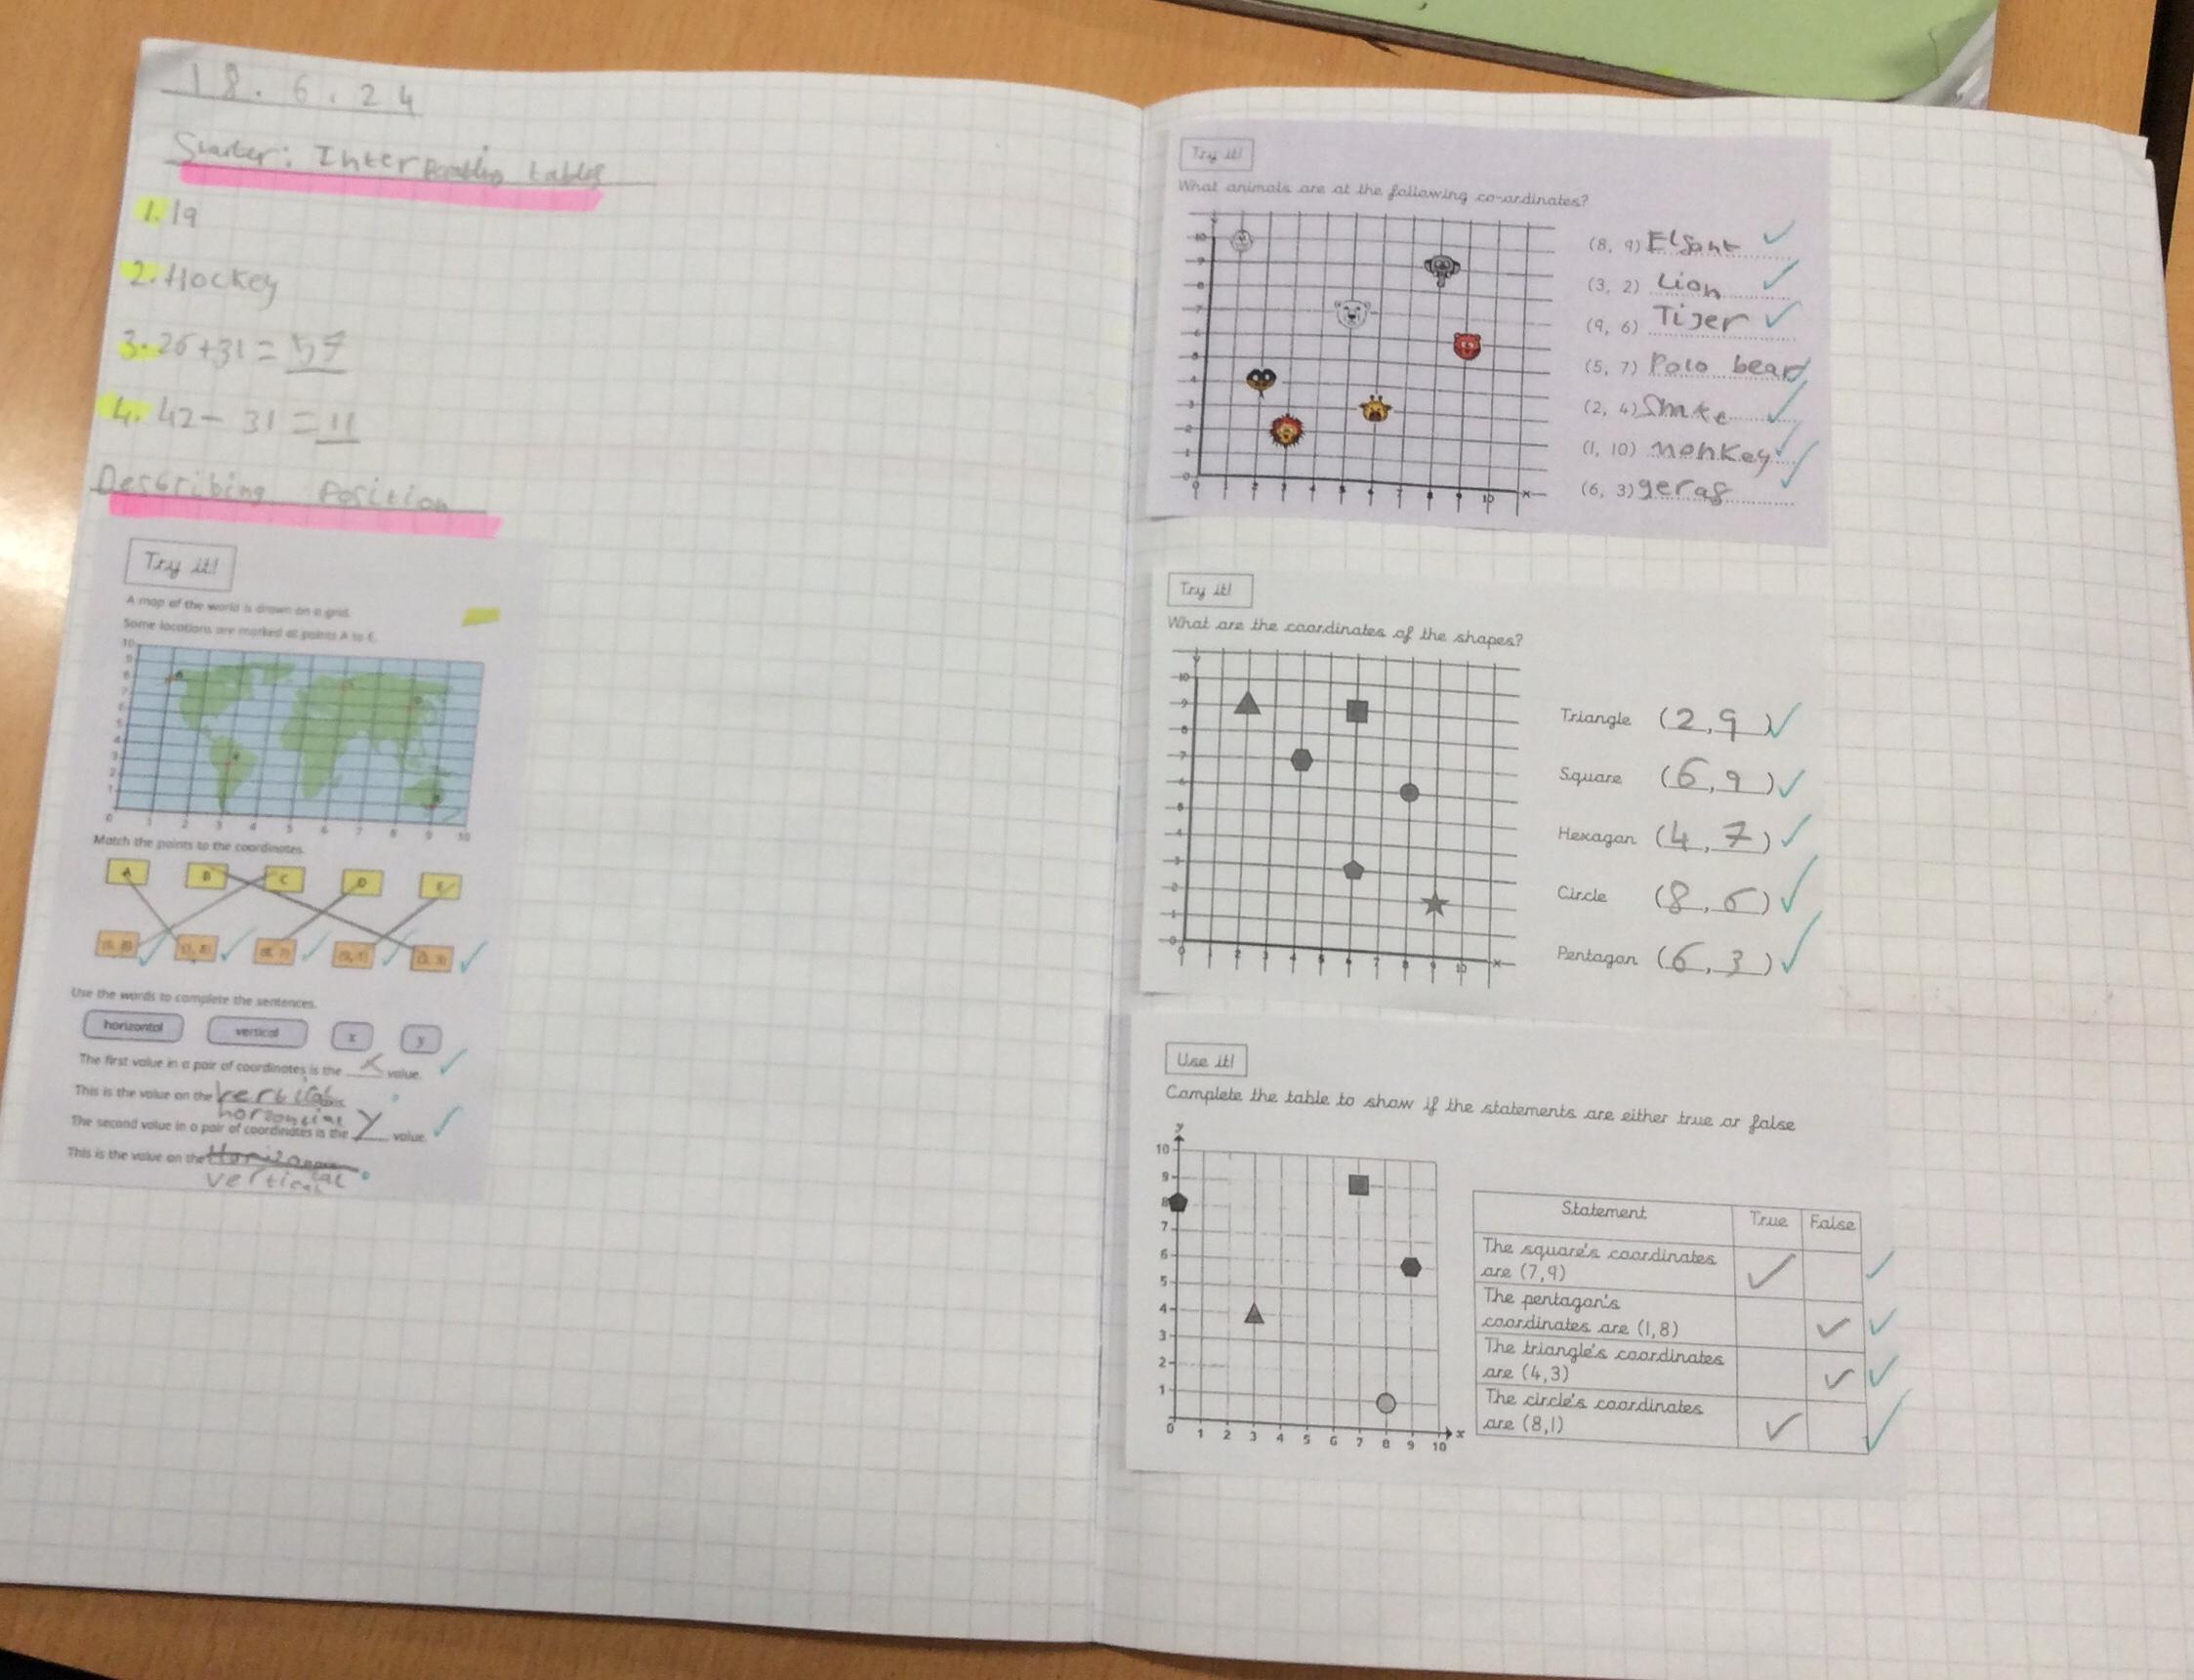 18.6.24
Starter: Interpreting tables
1. 19
2. Hockey
3. 26+31 = 57
4. 42 - 31 = 11
Describing Position
Try it!
A map of the world is drawn on a grid.
Some locations are marked at points A to E.
10
9
8
7
6
5
4
3
2
1
0 1 2 3 4 5 6 7 8 9 10
Match the points to the coordinates.
A B C D E
(6, 8) (1, 8) (8, 7) (9, 1) (3, 3)
Use the words to complete the sentences.
horizontal vertical x y
The first value in a pair of coordinates is the x value.
This is the value on the vertical axis.
The second value in a pair of coordinates is the y value.
This is the value on the
vertical
Try it!
What animals are at the following co-ordinates?
y
10
9
8
7
6
5
4
3
2
1
0
0 1 2 3 4 5 6 7 8 9 10 x
(8, 9) Elfant
(3, 2) Lion
(9, 6) Tijer
(5, 7) Polo bear
(2, 4) Snake
(1, 10) monkey
(6, 3) geraf
Try it!
What are the coordinates of the shapes?
y
10
9
8
7
6
5
4
3
2
1
0
0 1 2 3 4 5 6 7 8 9 10 x
Triangle (2,9)
Square (6,9)
Hexagon (4,7)
Circle (8,6)
Pentagon (6,3)
Use it!
Complete the table to show if the statements are either true or false
y
10
9
8
7
6
5
4
3
2
1
0 1 2 3 4 5 6 7 8 9 10 x
Statement True False
The square's coordinates
are (7,9)
The pentagon's
coordinates are (1,8)
The triangle's coordinates
are (4,3)
The circle's coordinates
are (8,1)